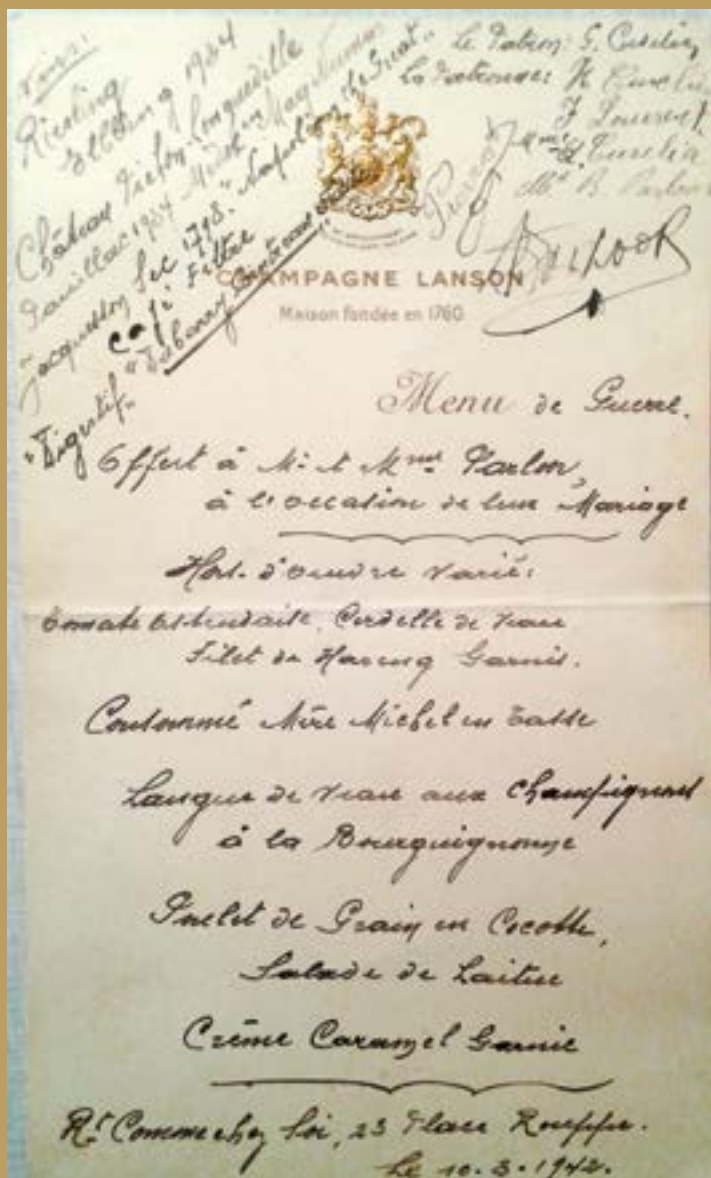 Vins:
Riesling
1934
Château Pichon-Longueville
Pauillac 1934 Médoc en Magnum
Jacquesson Sec 1798. "Napoléon the Great"
Café Filtre
"Digestif"
Le Patron: G.
La Patronne:
Pierrot
CHAMPAGNE LANSON
Maison fondée en 1760
Menu de Guerre.
Offert à Mr. et Mme
à l'occasion de leur Mariage
Hors-d'oeuvre varié:
Tomate Ostendaise, de Veau
Filet de Hareng Garnis.
Consommé Mère Michel en Tasse
Langue de Veau aux Champignons
à la Bourguignonne
Poulet de Grain en Cocotte,
Salade de Laitue
Crème Caramel Garnie
Rt Comme chez Soi, 23 Place Rouppe.
Le 10.3.1942.